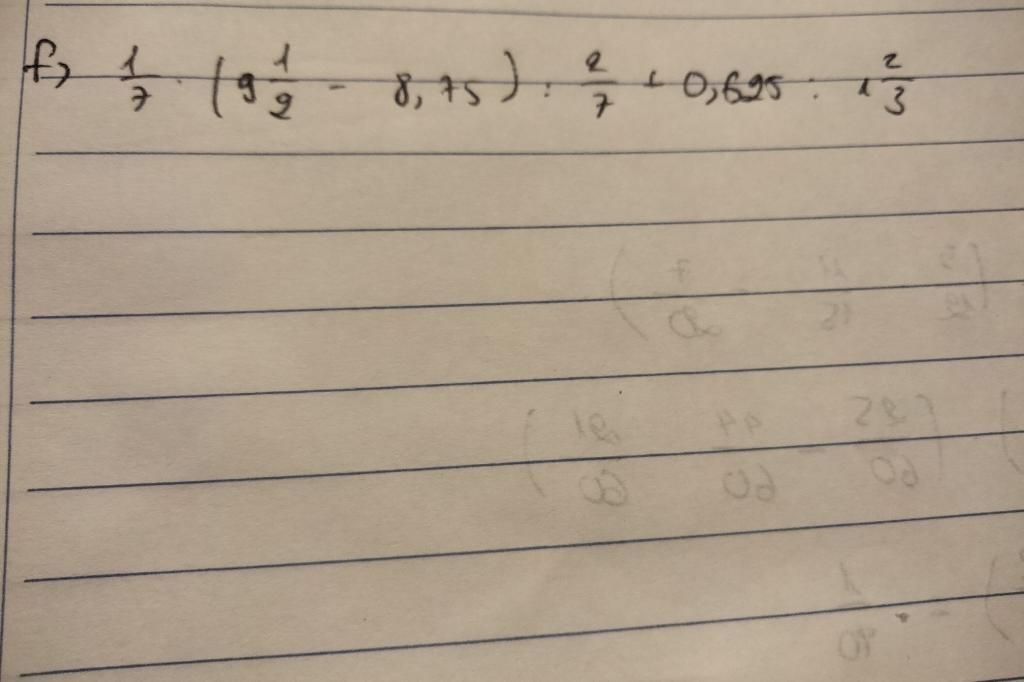 f, 1/7 · (9 1/2 - 8,75) : 2/7 + 0,625 : 1 2/3